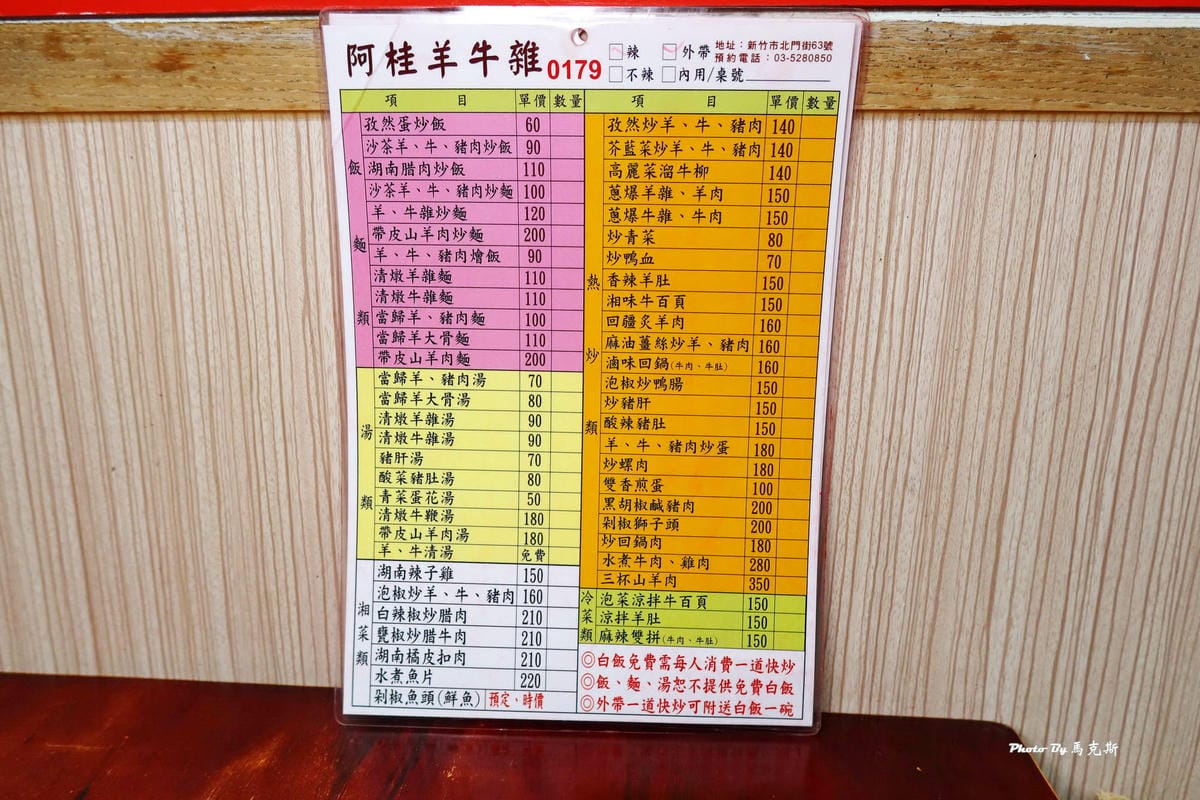 阿桂羊牛雜 0179
辣 外帶
不辣 內用/桌號
地址：新竹市北門街63號
預約電話：03-5280850
項目 單價 數量
飯麵類
孜然蛋炒飯 60
沙茶羊、牛、豬肉炒飯 90
湖南腊肉炒飯 110
沙茶羊、牛、豬肉炒麵 100
羊、牛雜炒麵 120
帶皮山羊肉炒麵 200
羊、牛、豬肉燴飯 90
清燉羊雜麵 110
清燉牛雜麵 110
當歸羊、豬肉麵 100
當歸羊大骨麵 110
帶皮山羊肉麵 200
湯類
當歸羊、豬肉湯 70
當歸羊大骨湯 80
清燉羊雜湯 90
清燉牛雜湯 90
豬肝湯 70
酸菜豬肚湯 80
青菜蛋花湯 50
清燉牛鞭湯 180
帶皮山羊肉湯 180
羊、牛清湯 免費
湘菜類
湖南辣子雞 150
泡椒炒羊、牛、豬肉 160
白辣椒炒腊肉 210
甕椒炒腊牛肉 210
湖南橘皮扣肉 210
水煮魚片 220
剁椒魚頭(鮮魚) 預定、時價
項目 單價 數量
熱炒類
孜然炒羊、牛、豬肉 140
芥藍菜炒羊、牛、豬肉 140
高麗菜溜牛柳 140
蔥爆羊雜、羊肉 150
蔥爆牛雜、牛肉 150
炒青菜 80
炒鴨血 70
香辣羊肚 150
湘味牛百頁 150
回疆炙羊肉 160
麻油薑絲炒羊、豬肉 160
滷味回鍋(牛肉、牛肚) 160
泡椒炒鴨腸 150
炒豬肝 150
酸辣豬肚 150
羊、牛、豬肉炒蛋 180
炒螺肉 180
雙香煎蛋 100
黑胡椒鹹豬肉 200
剁椒獅子頭 200
炒回鍋肉 180
水煮牛肉、雞肉 280
三杯山羊肉 350
冷菜類
泡菜涼拌牛百頁 150
涼拌羊肚 150
麻辣雙拼(牛肉、牛肚) 150
◎白飯免費需每人消費一道快炒
◎飯、麵、湯恕不提供免費白飯
◎外帶一道快炒可附送白飯一碗
Photo By 馬克斯